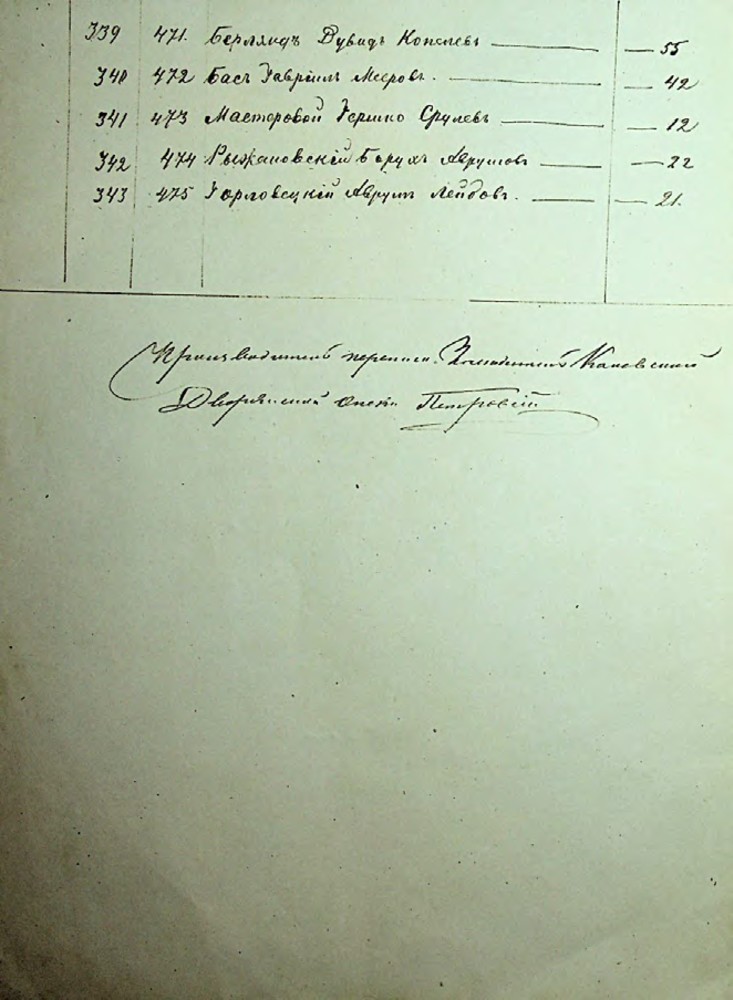 339 471. Берляндъ Дувидъ Копелевъ — 55
340 472 Басъ Гавріилъ Мееровъ. — 42
341 473 Мастеровой Гершко Срулевъ — 12
342 474 Рыжановскій Борухъ Аврумовъ — 22
343 475 Горловецкій Аврумъ Лейбовъ. — 21.
Производитель переписи Каневской
Дворянской Опеки Петровскій